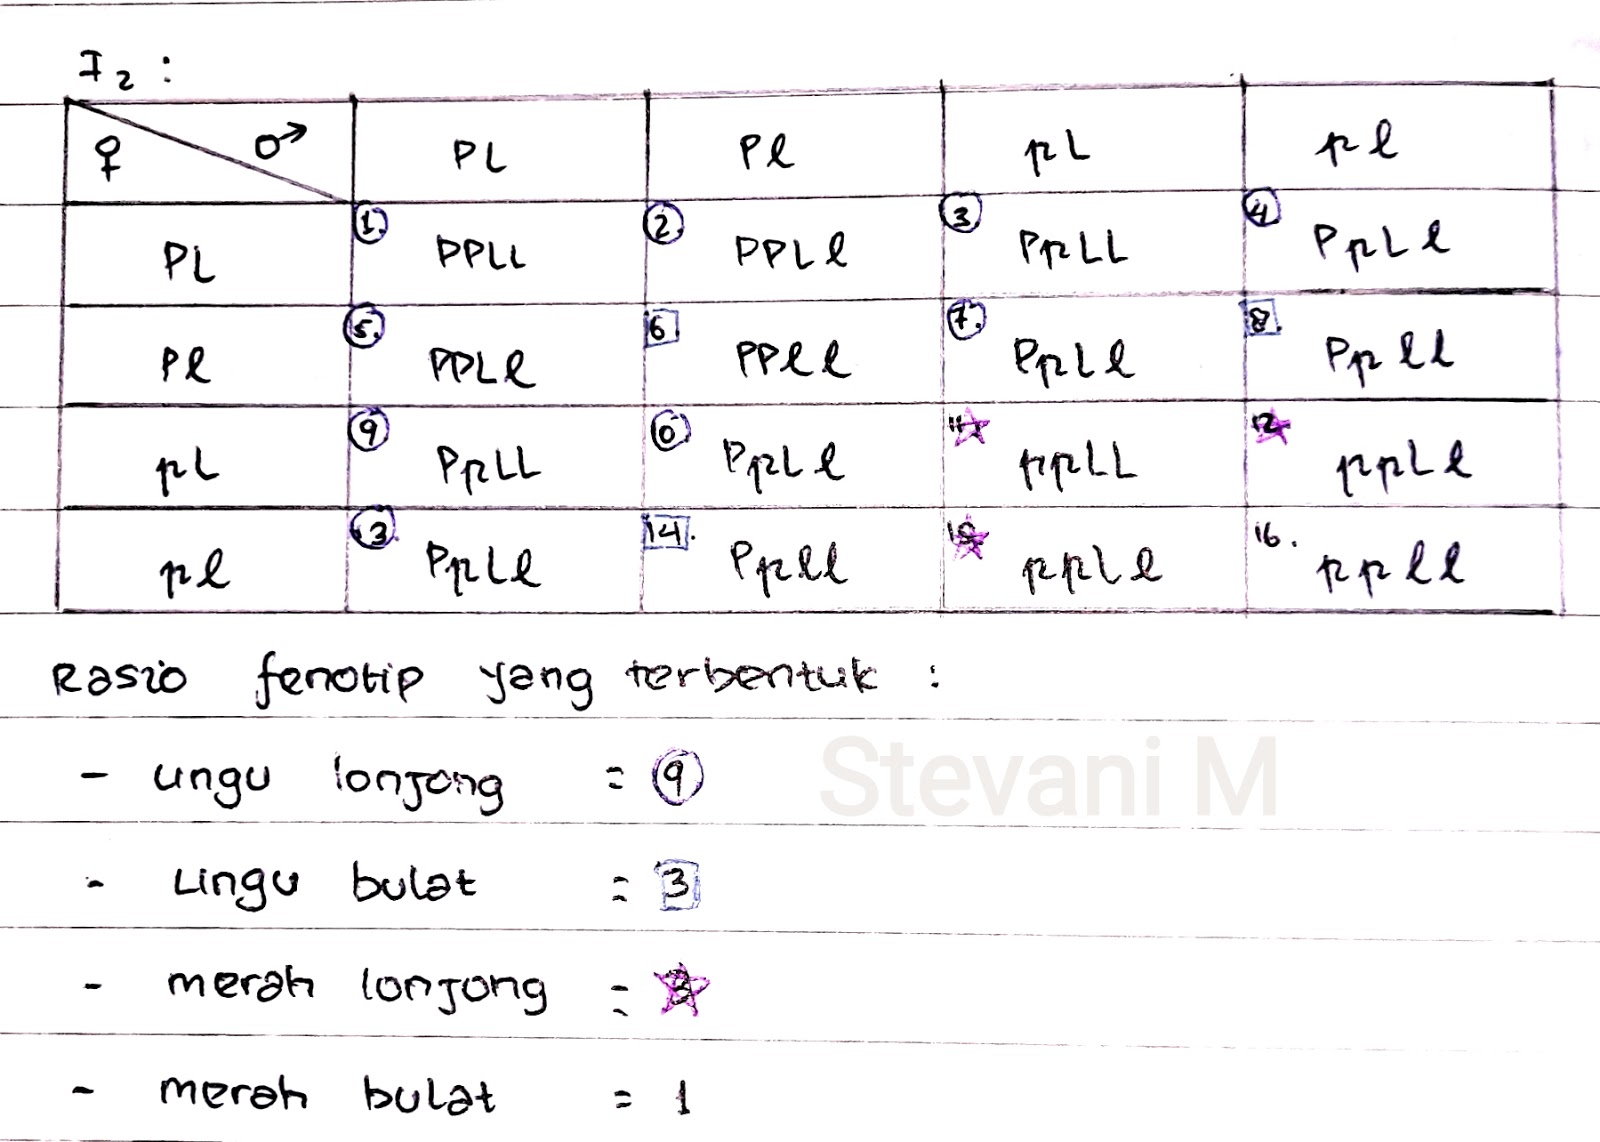 F2 :
♀ ♂ PL Pl pL pl
PL 1. PPLL 2. PPLl 3. PpLL 4. PpLl
Pl 5. PPLl 6. PPll 7. PpLl 8. Ppll
pL 9 PpLL 10 PpLl 11 ppLL 12 ppLl
pl 13. PpLl 14. Ppll 15 ppLl 16. ppll
Rasio fenotip yang terbentuk :
- ungu lonjong = 9
Stevani M
- Ungu bulat = 3
- merah lonjong = 3
- merah bulat = 1